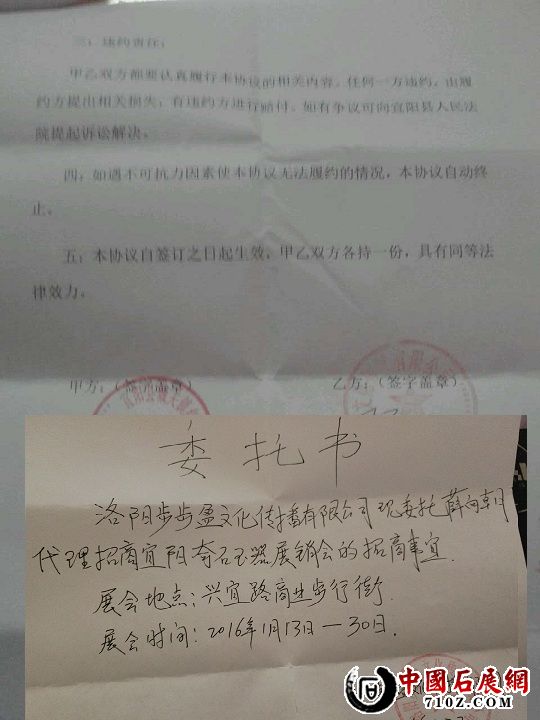 三：违约责任：
甲乙双方都要认真履行本协议的相关内容。任何一方违约，由履
约方提出相关损失，有违约方进行赔付。如有争议可向宜阳县人民法
院提起诉讼解决。
四：如遇不可抗力因素使本协议无法履约的情况，本协议自动终
止。
五：本协议自签订之日起生效，甲乙双方各持一份，具有同等法
律效力。
甲方：（签字盖章） 乙方：（签字盖章）
委托书
洛阳步步盈文化传播有限公司现委托薛向朝
代理招商宜阳奇石玉器展销会的招商事宜.
展会地点：兴宜路商业步行街.
展会时间：2016年1月13日—30日.
中國石展網
7102.COM